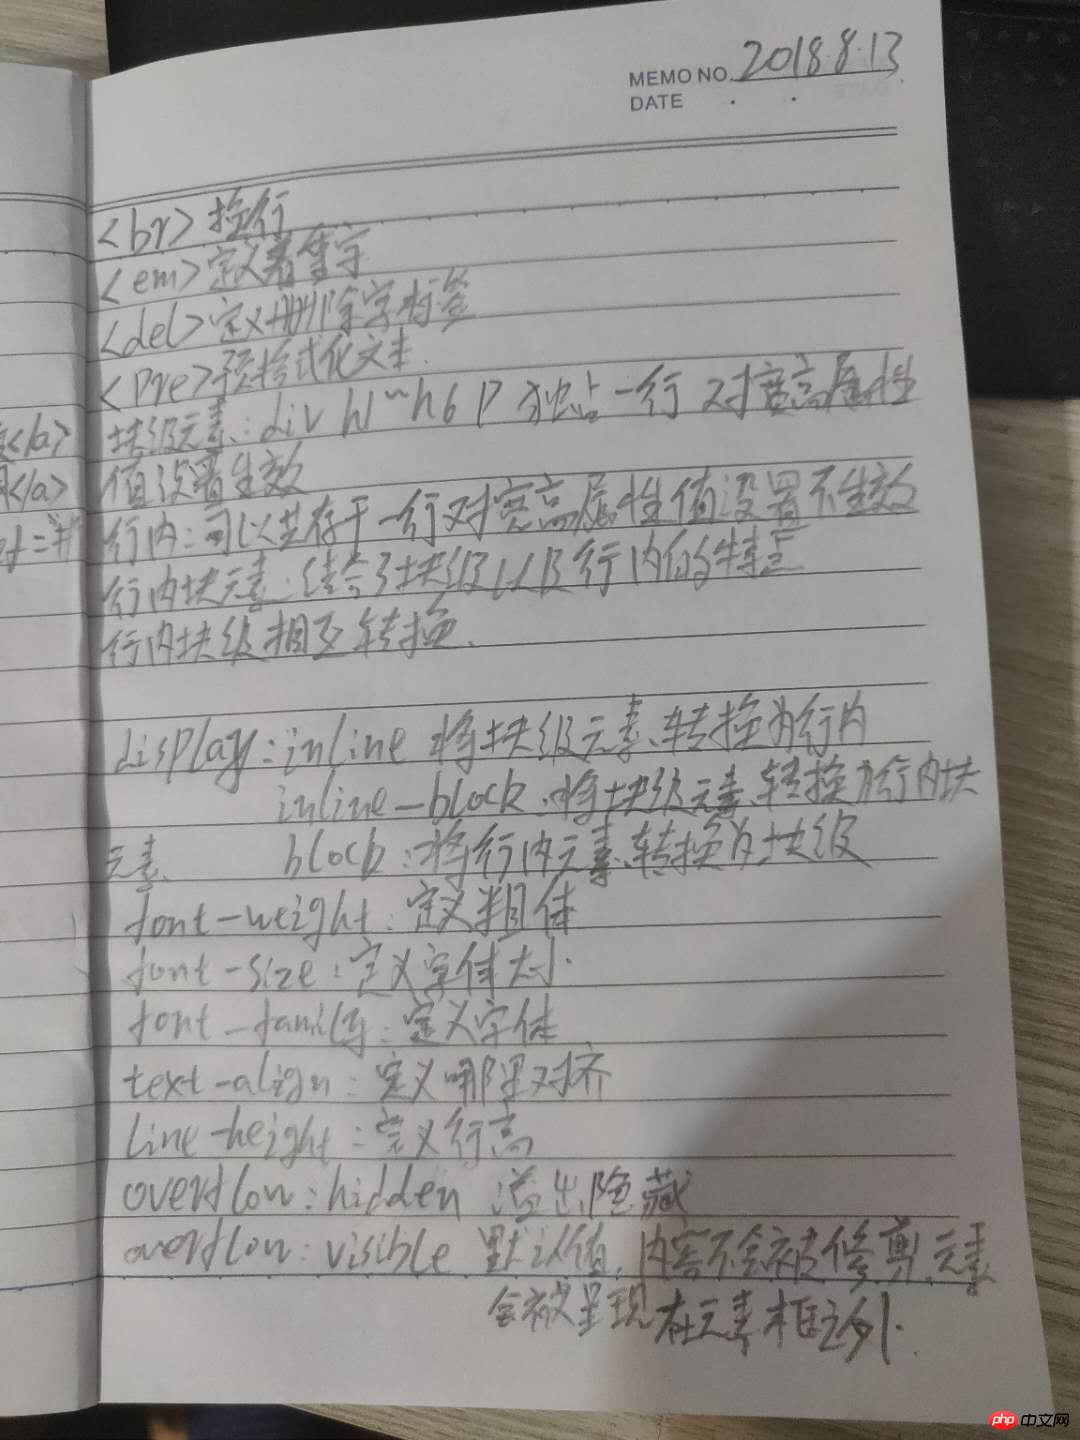 MEMO NO. 2018.8.13
DATE . .
<br>换行
<em>定义着重字
<del>定义删除字标签
<pre>预格式化文本.
块级元素:div h1~h6 p 独占一行 对宽高属性
值设置生效
行内:可以共存于一行对宽高属性值设置不生效
行内块元素:结合了块级以及行内的特点
行内块级相互转换.
display:inline 将块级元素转换为行内
inline-block:将块级元素转换为行内块
元素 block:将行内元素转换为块级
font-weight:定义粗体
font-size:定义字体大小.
font-family:定义字体
text-align:定义哪里对齐
line-height:定义行高
overflow:hidden 溢出隐藏
overflow:visible 默认值,内容不会被修剪,元素
会被呈现在元素框之外.
</a>
</a>
php 中文网